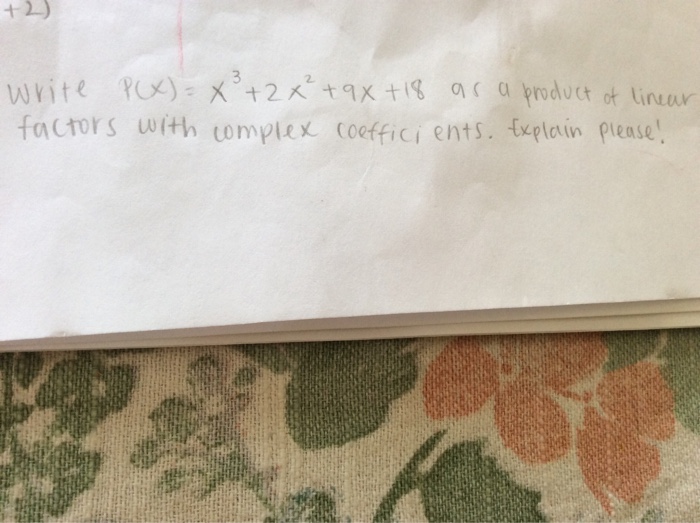 +2)
Write P(x) = x³ + 2x² + 9x + 18 as a product of linear
factors with complex coefficients. Explain please!